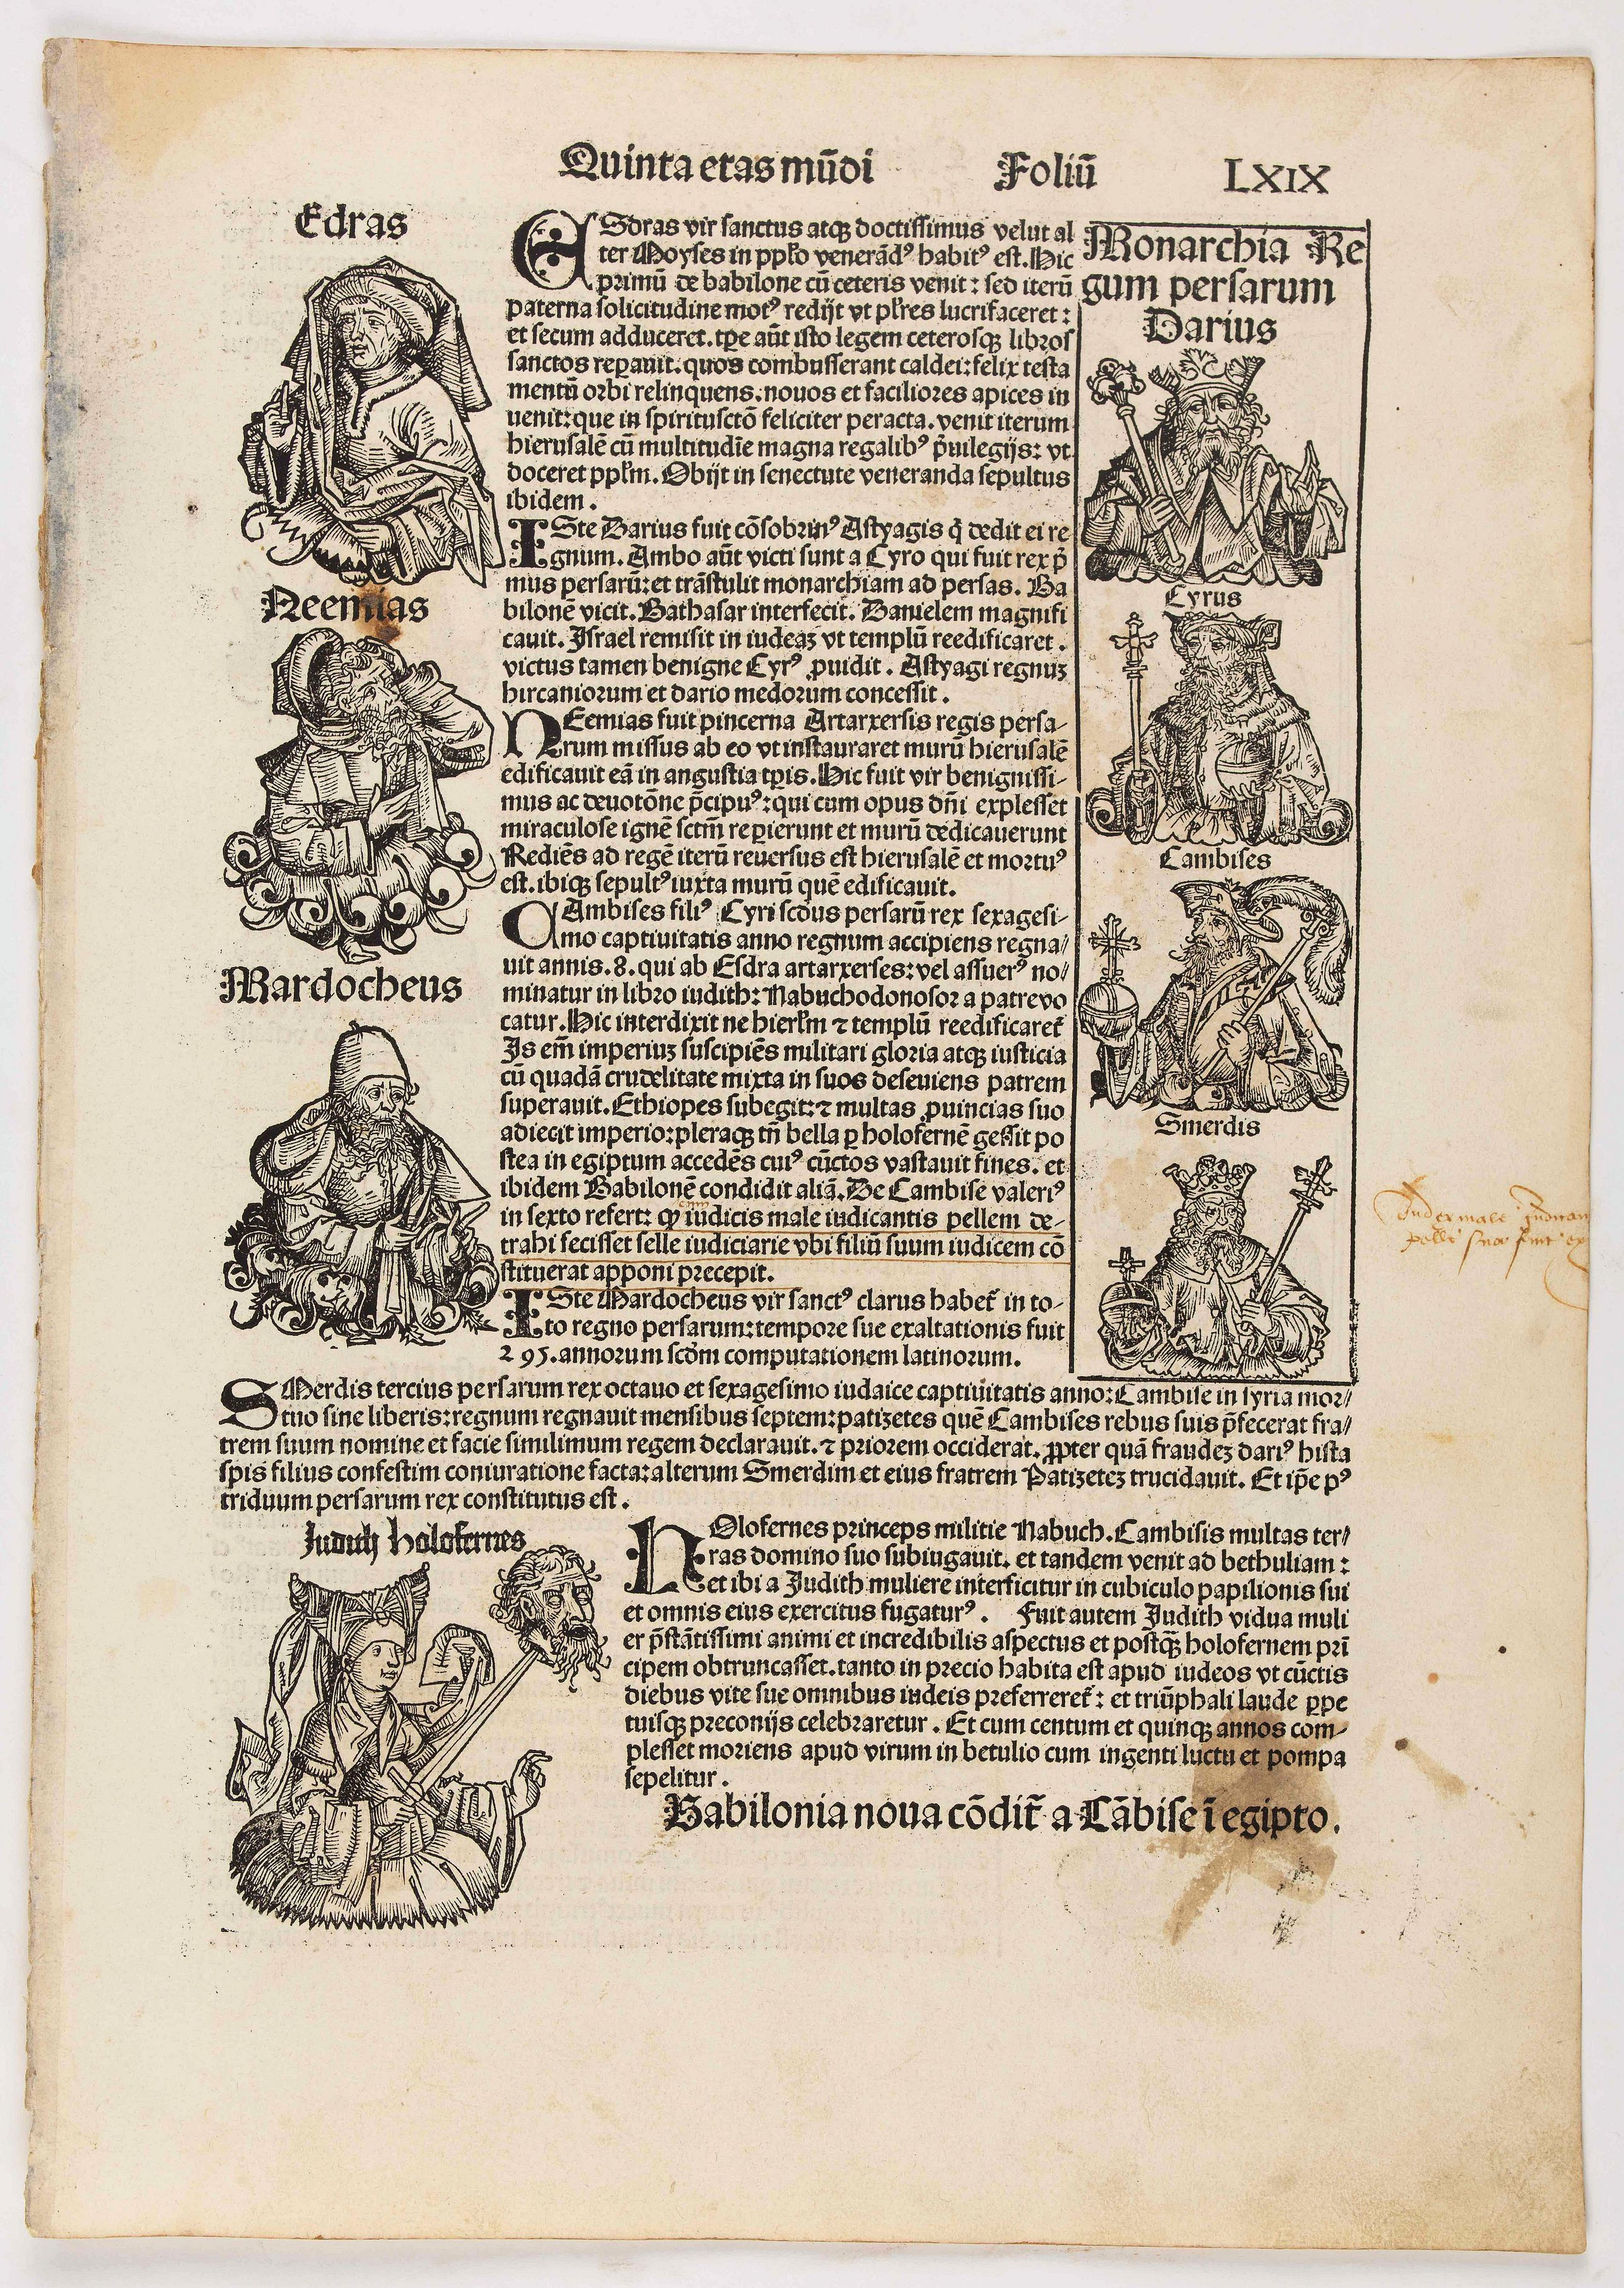 Quinta etas mūdi Foliū LXIX
Edras
ESdras vir sanctus atqꝫ doctissimus velut al
ter Moyses in ppło venerādꝰ habitꝰ est. Hic
primū de babilone cū ceteris venit: sed iterū
paterna solicitudine motꝰ redijt vt płres lucrifaceret:
et secum adduceret. tꝑe aūt isto legem ceterosqꝫ libros
sanctos reꝑauit. quos combusserant caldei: felix testa
mentū orbi relinquens. nouos et faciliores apices in
uenit: que in spiritusctō feliciter peracta. venit iterum
hierusalē cū multitudīe magna regalibꝰ p̄uilegijs: vt
doceret ppłm. Obijt in senectute veneranda sepultus
ibidem.
ISte Darius fuit cōsobrinꝰ Astyagis q̄ dedit ei re
gnum. Ambo aūt victi sunt a Cyro qui fuit rex p̄
mus persarū: et trāstulit monarchiam ad persas. Ba
bilonē vicit. Bathasar interfecit. Danielem magnifi
cauit. Israel remisit in iudeaꝫ vt templū reedificaret.
victus tamen benigne Cyrꝰ ꝓuidit. Astyagi regnuꝫ
hircaniorum et dario medorum concessit.
Neemias
NEemias fuit pincerna Artarxersis regis persa-
rum missus ab eo vt instauraret murū hierusalē
edificauit eā in angustia tꝑis. Hic fuit vir benignissi-
mus ac deuotōne p̄cipuꝰ: qui cum opus dn̄i explesset
miraculose ignē sctm̄ reꝑierunt et murū dedicauerunt
Rediēs ad regē iterū reuersus est hierusalē et mortuꝰ
est. ibiqꝫ sepultꝰ iuxta murū quē edificauit.
CAmbises filiꝰ Cyri scd̄us persarū rex sexagesi-
mo captiuitatis anno regnum accipiens regna/
uit annis. 8. qui ab Esdra artarxerses: vel assuerꝰ no/
minatur in libro iudith: Nabuchodonosor a patre vo
catur. Hic interdixit ne hierłm ⁊ templū reedificaret̄
Is em̄ imperiuꝫ suscipiēs militari gloria atqꝫ iusticia
cū quadā crudelitate mixta in suos deseuiens patrem
superauit. Ethiopes subegit: ⁊ multas ꝓuincias suo
adiecit imperio: pleraqꝫ tn̄ bella ꝑ holofernē gessit po
stea in egiptum accedēs cuiꝰ cūctos vastauit fines. et
ibidem Babilonē condidit aliā. De Cambise valeriꝰ
in sexto refert: ꝙ iudicis male iudicantis pellem de-
trahi fecisset selle iudiciarie vbi filiū suum iudicem cō
stituerat apponi precepit.
Mardocheus
ISte Mardocheus vir sanctꝰ clarus habet̄ in to-
to regno persarum: tempore sue exaltationis fuit
295. annorum scd̄m computationem latinorum.
Monarchia Re
gum persarum
Darius
Cyrus
Cambises
Smerdis
SMerdis tercius persarum rex octauo et sexagesimo iudaice captiuitatis anno: Cambise in syria mor/
tuo sine liberis: regnum regnauit mensibus septem: patizetes quē Cambises rebus suis p̄fecerat fra/
trem suum nomine et facie similimum regem declarauit. ⁊ priorem occiderat. ꝓpter quā fraudeꝫ dariꝰ hista
spis filius confestim coniuratione facta: alterum Smerdim et eius fratrem Patizeteꝫ trucidauit. Et ip̄e pꝰ
triduum persarum rex constitutus est.
Judith holofernes
HOlofernes princeps militie Nabuch. Cambisis multas ter/
ras domino suo subiugauit. et tandem venit ad bethuliam:
et ibi a Judith muliere interficitur in cubiculo papilionis sui
et omnis eius exercitus fugaturꝰ. Fuit autem Judith vidua muli
er p̄stātissimi animi et incredibilis aspectus et postqꝫ̄ holofernem pri̅
cipem obtruncasset. tanto in precio habita est apud iudeos vt cūctis
diebus vite sue omnibus iudeis preferreret̄: et triūphali laude ꝑpe
tuisqꝫ preconijs celebraretur. Et cum centum et quinqꝫ annos com-
plesset moriens apud virum in betulio cum ingenti luctu et pompa
sepelitur.
Babilonia noua cōdit̄ a Cābise ī egipto.